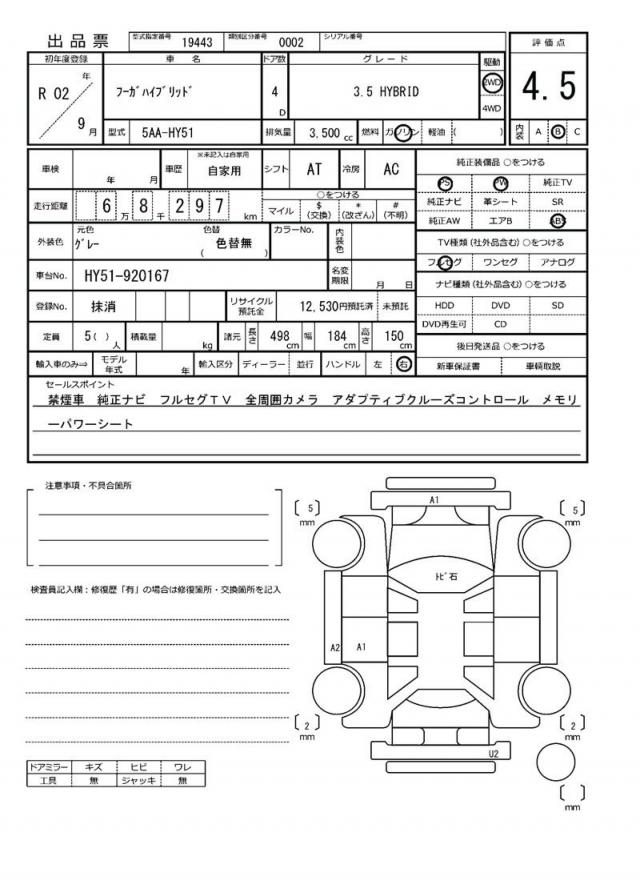 出品票 型式指定番号 19443 類別区分番号 0002 シリアル番号
初年度登録 車名 ドア数 グレード 駆動 評価点
R 02 年 9 月 フーガハイブリッド 4 D 3.5 HYBRID 2WD 4WD 4.5
型式 5AA-HY51 排気量 3,500 cc 燃料 ガソリン 軽油 ( ) 内装 A B C
車検 年 月 車歴 ※未記入は自家用 自家用 シフト AT 冷房 AC
走行距離 6 万 8 千 2 9 7 km ○をつける マイル $ (交換) * (改ざん) # (不明)
外装色 元色 グレー 色替 ( 色替無 ) カラーNo. 内装色
車台No. HY51-920167 名変期限 月 日
登録No. 抹消 リサイクル預託金 12,530円預託済 未預託
定員 5( ) 人 積載量 kg 諸元 長さ 498 cm 幅 184 cm 高さ 150 cm
輸入車のみ⇒ モデル年式 年 輸入区分 ディーラー 並行 ハンドル 左 右
純正装備品 ○をつける
PS PW 純正TV
純正ナビ 革シート SR
純正AW エアB ABS
TV種類(社外品含む) ○をつける
フルセグ ワンセグ アナログ
ナビ種類(社外品含む) ○をつける
HDD DVD SD
DVD再生可 CD
後日発送品 ○をつける
新車保証書 車輌取説
セールスポイント
禁煙車 純正ナビ フルセグTV 全周囲カメラ アダプティブクルーズコントロール メモリ
ーパワーシート
注意事項・不具合箇所
検査員記入欄:修復歴「有」の場合は修復箇所・交換箇所を記入
ドアミラー キズ ヒビ ワレ
工具 無 ジャッキ 無
A1
[ 5 ] mm
[ 5 ] mm
トビ石
A2 A1
[ 2 ] mm
[ 2 ] mm
U2
[ ] mm